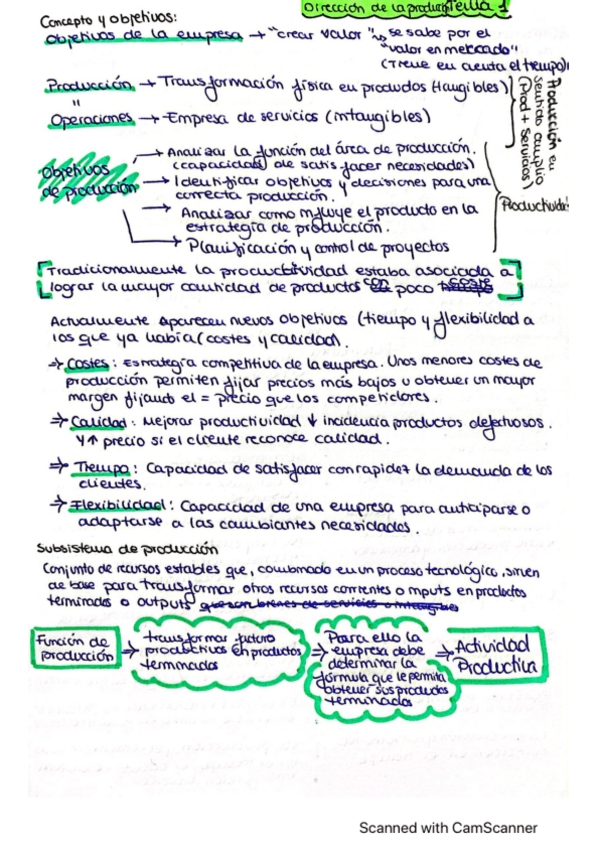 Dirección de la produc Tema 1
Concepto y objetivos:
Objetivos de la empresa → "crear valor" ↳ se sabe por el
"valor en mercado"
(Tiene en cuenta el tiempo)
Producción → Transformación física en productos (tangibles)
"
Operaciones → Empresa de servicios (intangibles)
Producción en
sentido amplio
(Prod + Servicios)
Objetivos
de producción
→ Analizar la función del área de producción.
(capacidad de satisfacer necesidades)
→ Identificar objetivos y decisiones para una
correcta producción.
→ Analizar como influye el producto en la
estrategia de producción.
→ Planificación y control de proyectos
Productivida
Tradicionalmente la productividad estaba asociada a
lograr la mayor cantidad de productos con poco coste
Actualmente aparecen nuevos objetivos (tiempo y flexibilidad a
los que ya había (costes y calidad).
→ Costes: Estrategia competitiva de la empresa. Unos menores costes de
producción permiten fijar precios más bajos u obtener un mayor
margen fijando el = precio que los competidores.
→ Calidad: Mejorar productividad ↓ incidencia productos defectuosos.
Y ↑ precio si el cliente reconoce calidad.
→ Tiempo: Capacidad de satisfacer con rapidez la demanda de los
clientes.
→ Flexibilidad: Capacidad de una empresa para anticiparse o
adaptarse a las cambiantes necesidades.
Subsistema de producción
Conjunto de recursos estables que, combinado en un proceso tecnológico, sirven
de base para transformar otros recursos corrientes o inputs en productos
terminados o outputs que son bienes de servicios o intangibles
Función de
producción
→ transformar futuro
productivos en productos
terminados
→ Para ello la
empresa debe
determinar la
fórmula que le permita
obtener sus productos
terminados
→ Actividad
Productiva
Scanned with CamScanner